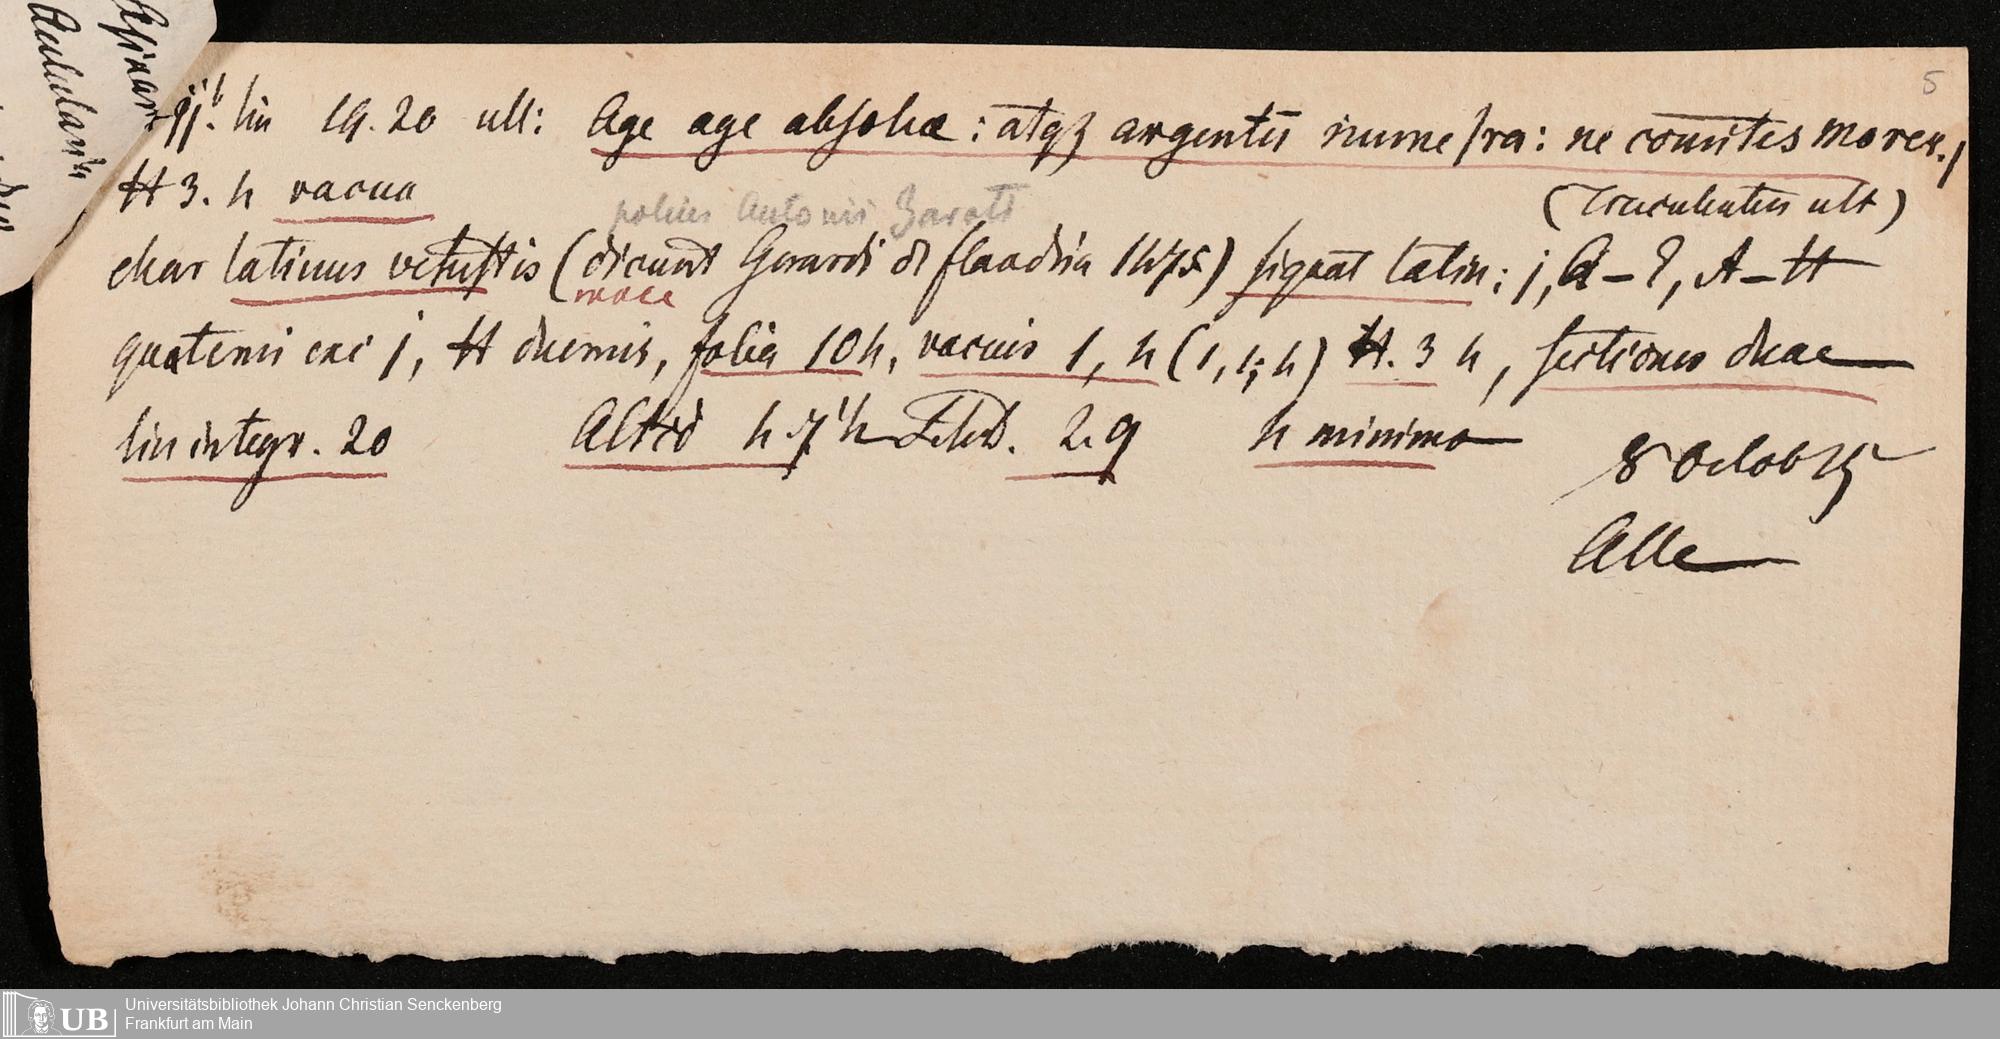 5
Asinar
Aulular
jjb. lin 19. 20 ult: Age age absolue: atqz argentū nume/ra: ne comites morer./
H 3. h vacua (Truculentus ult)
potius Antonii Zaroti
char latinus vetustis (dicunt Gerardi d flandria 1475) signat latin: j, a–z, A–H
quaterni exc j, H duernis, folia 104, vacuis 1, 4 (1, 1; 4) H. 3 4, sectiones duae
lin integr. 20 Altid 2.9 minimo
8 Octob
Alle
Universitätsbibliothek Johann Christian Senckenberg
Frankfurt am Main
UB